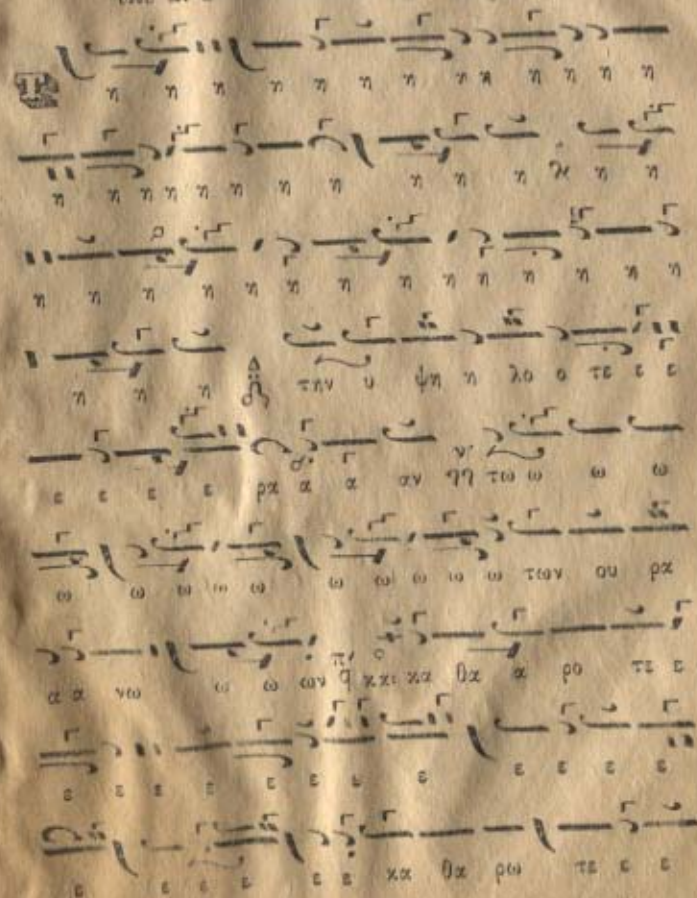 Τ η η η η η η η η η η η η η
η η η η η η η η η η η η η
η η η η η η η η η η η η η η
η η η την υ ψη η λο ο τε ε ε
ε ε ε ε ρα α α αν τω ω ω ω
ω ω ω ω ω ω ω ω ω ω των ου ρα
α α νω ω ω ων και κα θα α ρο τε ε
ε ε ε ε ε ε ε ε ε ε ε ε
ε ε ε ε ε ε κα θα ρω τε ε ε